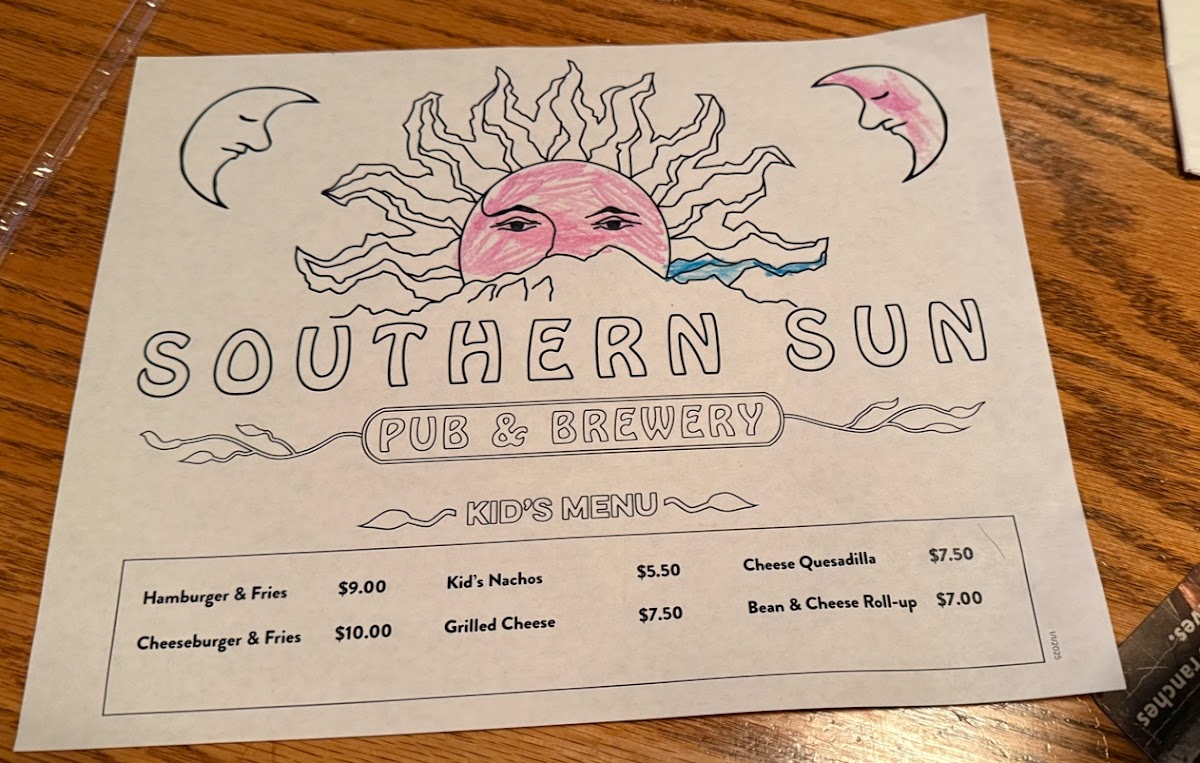 SOUTHERN SUN
PUB & BREWERY
KID'S MENU
Hamburger & Fries $9.00
Cheeseburger & Fries $10.00
Kid's Nachos $5.50
Grilled Cheese $7.50
Cheese Quesadilla $7.50
Bean & Cheese Roll-up $7.00
1/1/2025
ranches